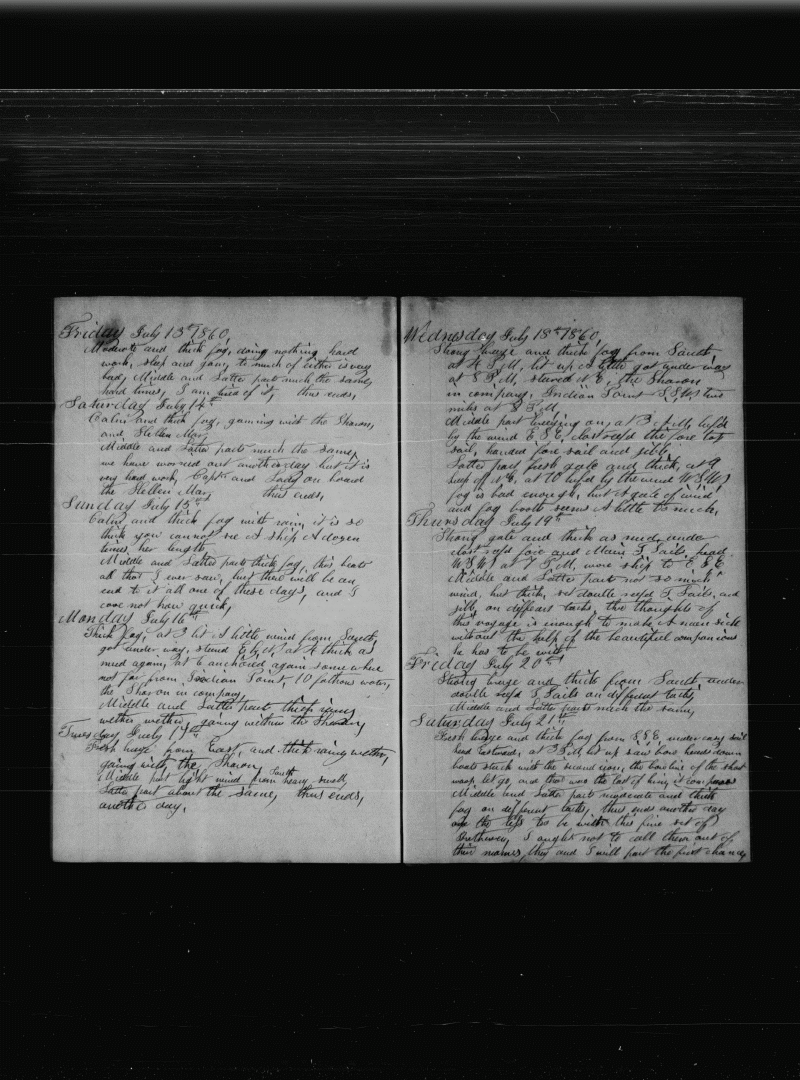 Friday July 13th 1860,
Moderate and thick fog, doing nothing hard
work, sleep and gam, to much of either is very
bad, Middle and Latter parts much the same,
hard times, I am tired of it, thus ends,
Saturday July 14th
Calm and thick fog, gaming with the Sharon,
and Hellen Mar,
Middle and Latter parts much the same,
we have worried out another day but it is
very hard work, Capt and Lady on board
the Hellen Mar, thus ends,
Sunday July 15th
Calm and thick fog with rain, it is so
thick you cannot see A ship A dozen
times her length,
Middle and Latter parts thick fog, this beats
all that I ever saw, but there will be an
end to it all one of these days, and I
care not how quick,
Monday July 16th
Thick fog, at 3 lit A little wind from South,
got under way, steared E by N, at 4 thick as
mud again, at 6 anchored again some where
not far from Indian Point, 10 fathoms water,
the Sharon in company,
Middle and Latter part thick rainy
wether, gaming with the Sharon,
Tuesday July 17th
Fresh breeze from East, and thick rainy wether,
gaming with the Sharon,
Middle part light wind from South heavy swell,
Latter part about the same, thus ends,
another day,
Wednesday July 18th 1860,
Strong breeze and thick fog from South,
at 4 P.M, lit up A little got under way
at 5 P.M, steared N E, the Sharon
in company, Indian Point S.S.W two
miles at 8 P.M,
Middle part breezing on, at 3 A.M, luf'd
by the wind E.S.E, close reef'd the fore top
sail, handed fore sail and jibb,
Latter part fresh gale and thick, at 9
keep off N.E, at 10 luf'd by the wind W.S.W,
fog is bad enough, but A gale of wind
and fog boath seems A little to much,
Thursday July 19th
Strong gale and thick as mud, under
close reef'd fore and Main T. Sails, head
W.S.W, at 7 P.M, wore ship to E.S.E
Middle and Latter parts not so much
wind, but thick, set double reef'd T. Sails, and
jibb, on different tacks, the thoughts of
this voyage is enough to make A man sick
without the help of the beautiful companions
he has to be with
Friday July 20th
Strong breeze and thick from South, under
double reef'd T. Sails on different tacks,
Middle and Latter parts much the same,
Saturday July 21st
Fresh breeze and thick fog from S.S.E, under easy sail
head Eastward, at 3 P.M lit up saw bow heads down
boats struck with the second iron, the bowline of the short
warp let go, and that was the last of him,
Middle and Latter parts moderate and thick
fog on different tacks, thus ends another day
to be with this fine set of
Bretheren, I ought not to call them out of
their names, they and I will part the first chance